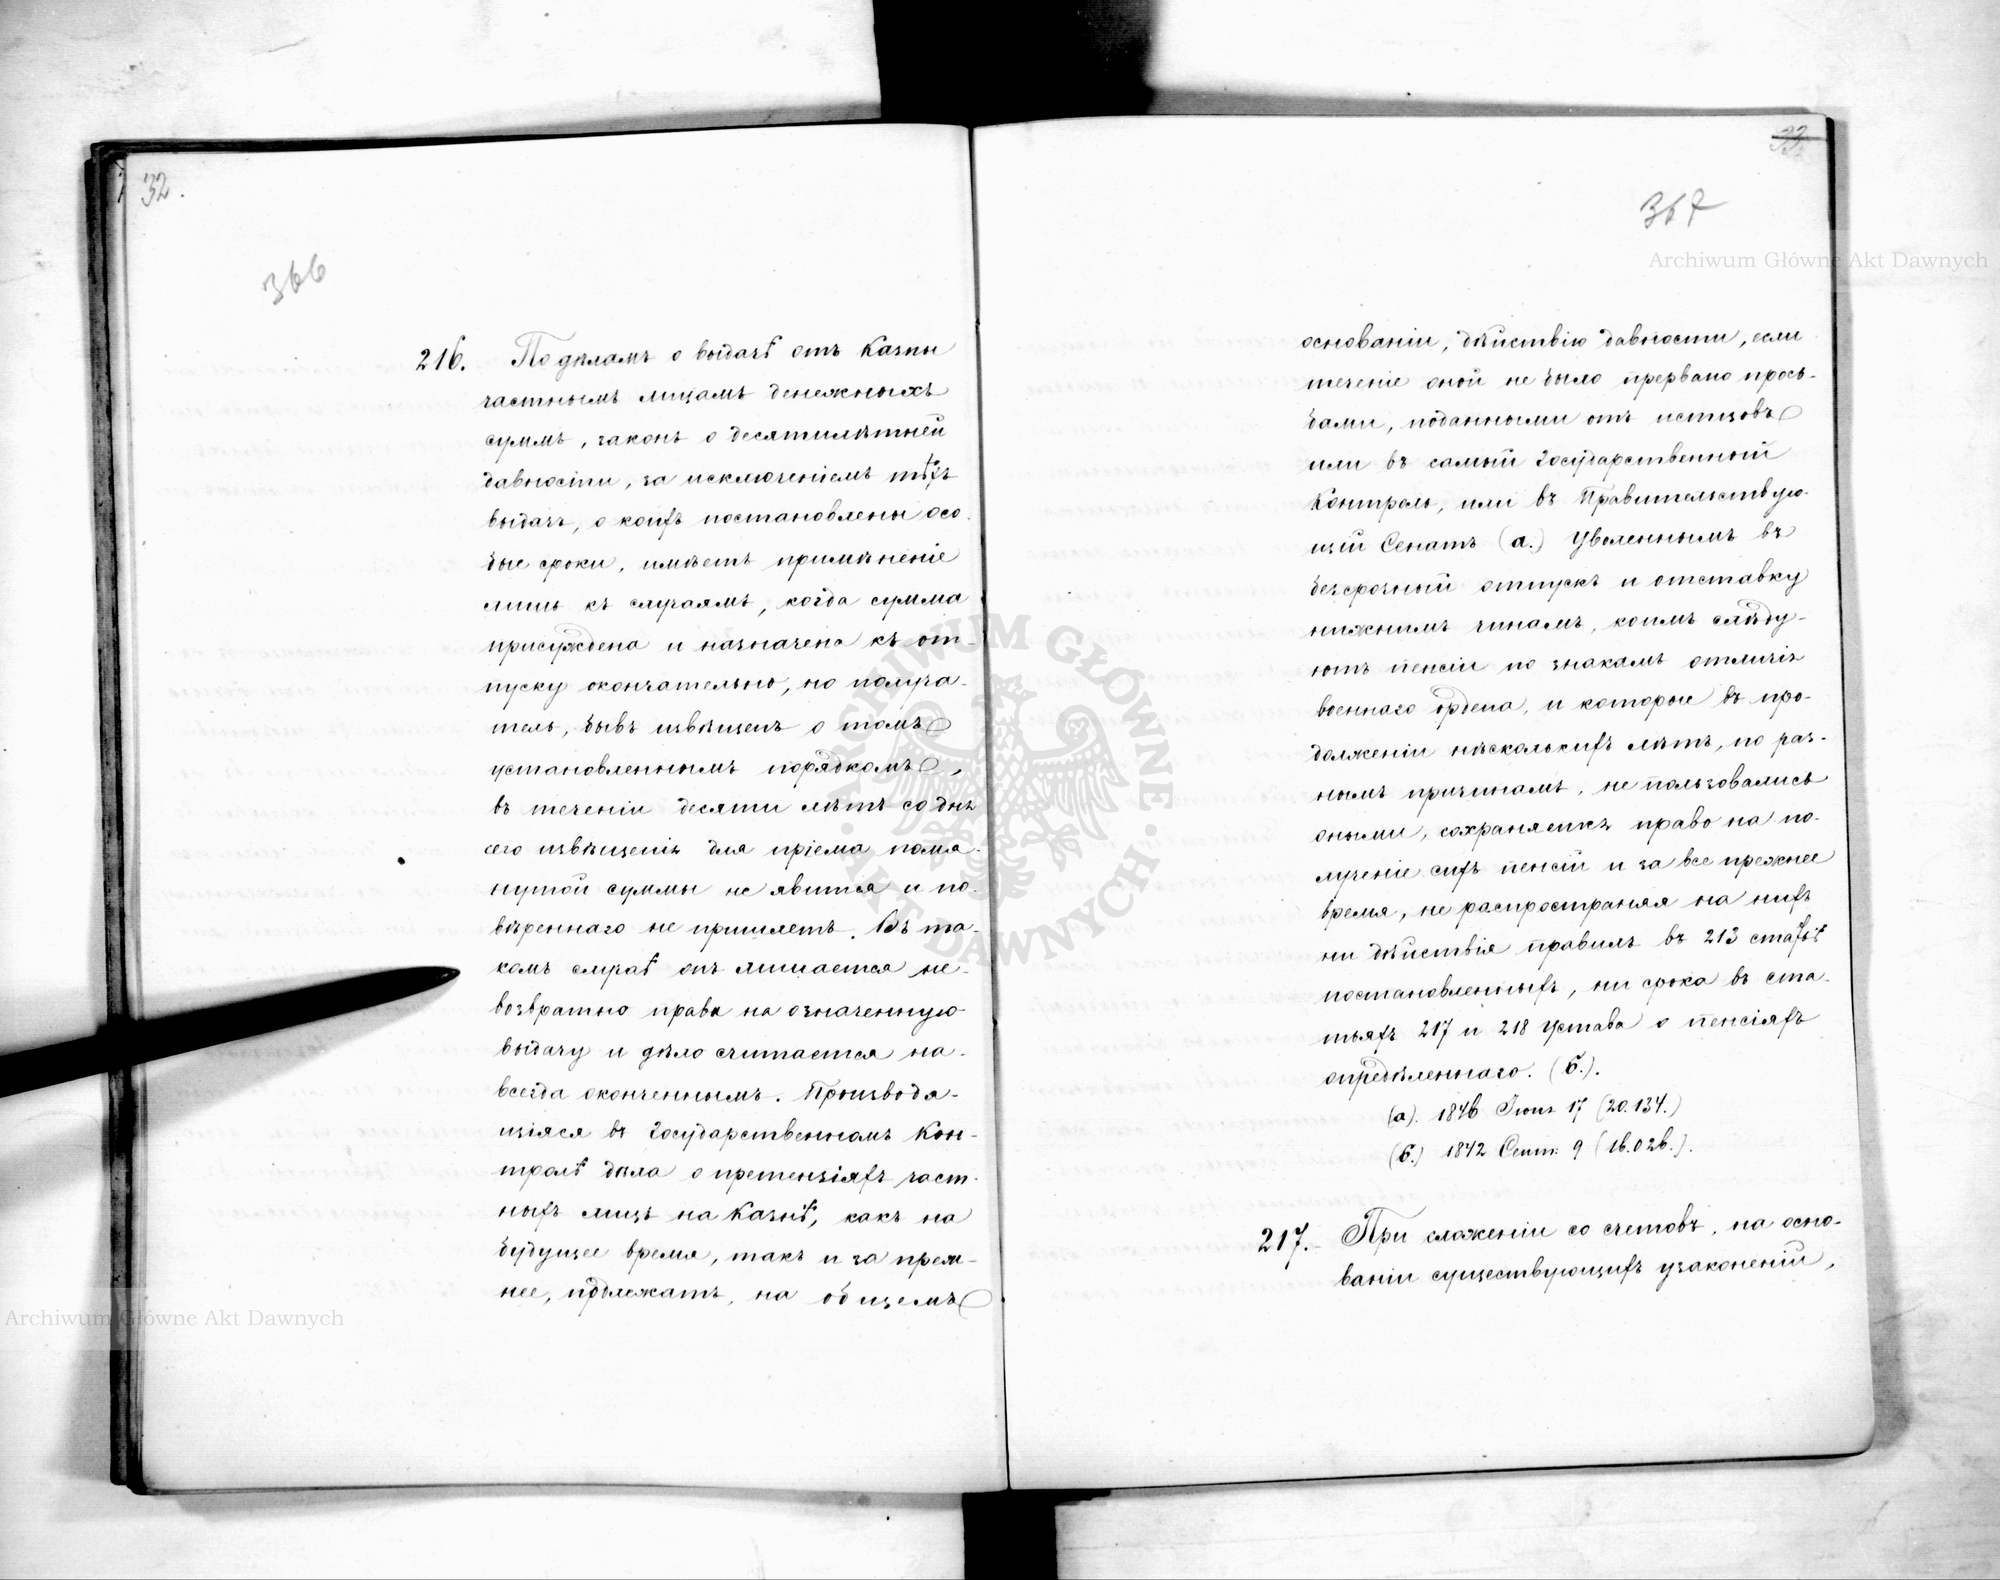 32.
366
216. По дѣламъ о выдачѣ отъ Казны
частнымъ лицамъ денежныхъ
суммъ, законъ о десятилѣтней
давности, за исключеніемъ тѣхъ
выдачъ, о коихъ постановлены осо-
бые сроки, имѣетъ примѣненіе
лишь къ случаямъ, когда сумма
присуждена и назначена къ от-
пуску окончательно, но получа-
тель, бывъ извѣщенъ о томъ
установленнымъ порядкомъ,
въ теченіи десяти лѣтъ со дня
сего извѣщенія для пріема помя-
нутой суммы не явится и по-
вѣреннаго не пришлетъ. Въ та-
комъ случаѣ онъ лишается не-
возвратно права на означенную
выдачу и дѣло считается на-
всегда оконченнымъ. Производя-
щіяся въ Государственномъ Кон-
тролѣ дѣла о претензіяхъ част-
ныхъ лицъ на Казнѣ, какъ на
будущее время, такъ и за преж-
нее, подлежатъ, на общемъ
33.
367
основаніи, дѣйствію давности, если
теченіе оной не было прервано прось-
бами, поданными отъ истцовъ
или въ самый Государственный
Контроль, или въ Правительствую-
щій Сенатъ (а.) Уволеннымъ въ
безсрочный отпускъ и отставку
нижнимъ чинамъ, коимъ слѣду-
ютъ пенсіи по знакамъ отличія
военнаго ордена, и которые въ про-
долженіи нѣсколькихъ лѣтъ, по раз-
нымъ причинамъ, не пользовались
оными, сохраняется право на по-
лученіе сихъ пенсій и за все прежнее
время, не распространяя на нихъ
ни дѣйствія правилъ въ 213 статьѣ
постановленныхъ, ни срока въ ста-
тьяхъ 217 и 218 Устава о пенсіяхъ
опредѣленнаго. (б.).
(а). 1846 Іюня 17 (20.134.)
(б.) 1842 Сент. 9 (16.026.).
217. При сложеніи со счетовъ, на осно-
ваніи существующихъ узаконеній,
Archiwum Główne Akt Dawnych
Archiwum Główne Akt Dawnych
ARCHIWUM GŁÓWNE · AKT DAWNYCH ·